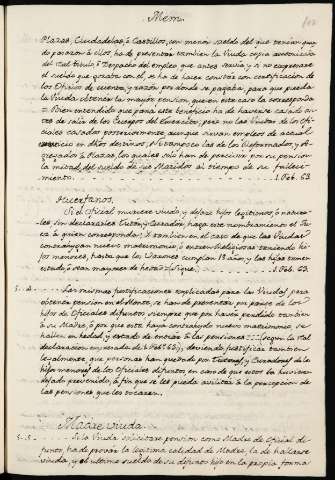 Mem.
Plazas, Ciudadelas, ó Castillos, con menor sueldo del que tenian quan-
do pasaron á ellos, ha de presentar tambien la Viuda copia autorizada
del tal titulo, ó Despacho del empleo que antes servia y si no expresare
el sueldo que gozaba con él, se ha de hacer constar con certificacion de
los Oficios de cuenta, y razon por donde se pagaba, para que pueda
la Viuda obtener la mayor pension, que en este caso le corresponda
Bien entendido que para este beneficio ha de haverse casado an-
tes de salir de los Cuerpos del Exercito; pero no las Viudas de los Ofi-
ciales casados posteriormente, aunque sirvan empleos de actual
exercicio en dhos destinos; ni tampoco las de los Reformados, y A-
gregados á Plazas, las quales solo han de percivir por su pension
la mitad del sueldo de sus Maridos al tiempo de su falleci-
miento. 1. Feb. 63.
Huerfanos.
Si el Oficial muriere viudo, y dejare hijos legitimos, ó natura-
les, sin declararles Tutor, y Curador, hace este nombramiento el Ju-
ez á quien corresponde: Y tambien en el caso de que las Viudas
contraygan nuevo matrimonio, ó entren Religiosas teniendo hi-
jos menores, hasta que los Varones cumplan 18 años y las hijas tomen
estado, ó sean mayores de hedad (Sigue) 1. Feb. 63.
Las mismas justificaciones explicadas para las Viudas, para
obtener pension en el Monte, se han de presentar por parte de los
hijos de Oficiales difuntos siempre que por haver perdido tambien
á su Madre, ó por que esta haya contrahydo nuevo matrimonio, se
hallen en hedad, y estado de entrar á las pensiones (segun la Rl
declaracion expresada de 1. Feb. 63), deviendo justificar tambien
legalmente, que personas han quedado por Tutores, y Curadores de los
hijos menores de los Oficiales difuntos, en caso de que estos lo huvieren
dejado prevenido, á fin que se les pueda avilitar á la percepcion de
las pensiones que les tocaren.
Madre viuda.
Si la Viuda solicitare pension como Madre de Oficial di-
funto, ha de provar la legitima calidad de Madre, la de hallarse
viuda, y el ultimo sueldo de su difunto hijo en la propia forma